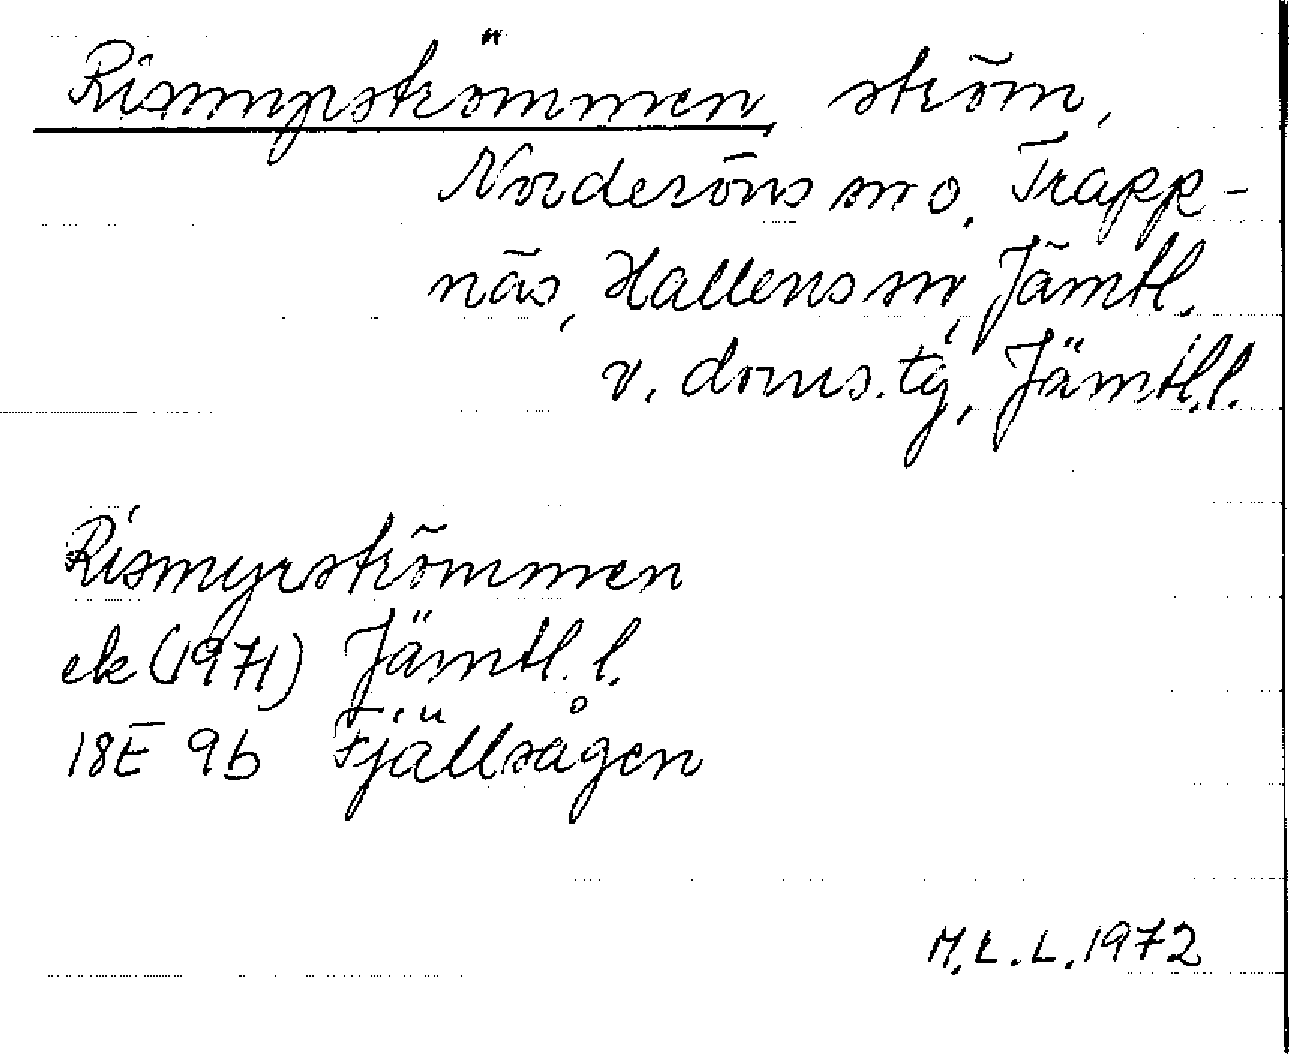 Rismyrströmmen, ström,
Norderöns sn o. Trapp-
näs, Hallens sn, Jämtl.
v. doms. tg, Jämtl.l.
Rismyrströmmen
ek (1971) Jämtl. l.
18E 9b Fjällsågen
M.L.L. 1972